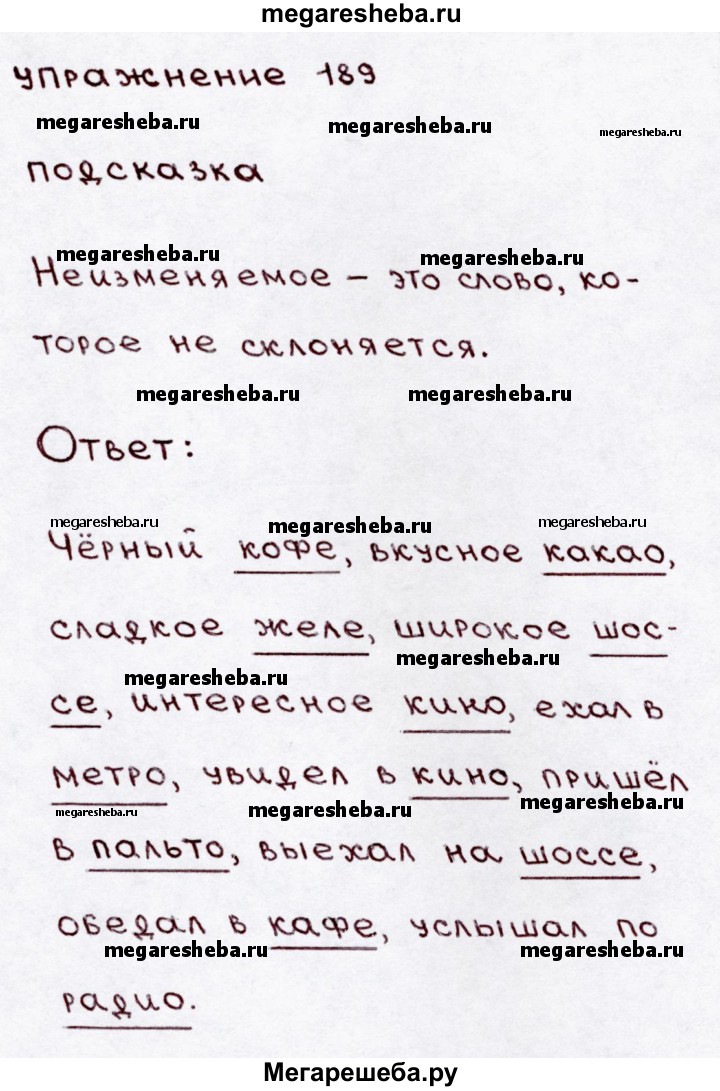 megaresheba.ru
упражнение 189
megaresheba.ru megaresheba.ru megaresheba.ru
подсказка
megaresheba.ru megaresheba.ru
Неизменяемое – это слово, ко-
торое не склоняется.
megaresheba.ru megaresheba.ru
Ответ:
megaresheba.ru megaresheba.ru megaresheba.ru
Чёрный кофе, вкусное какао,
сладкое желе, широкое шос-
megaresheba.ru megaresheba.ru
се, интересное кино, ехал в
метро, увидел в кино, пришёл
megaresheba.ru megaresheba.ru megaresheba.ru
в пальто, выехал на шоссе,
обедал в кафе, услышал по
megaresheba.ru megaresheba.ru
радио.
Мегарешеба.ру